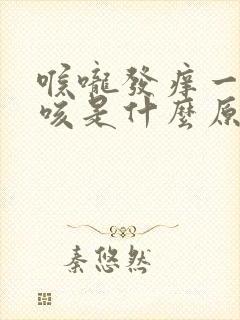 喉嚨發痒一
咳是什麼原
秦悠然